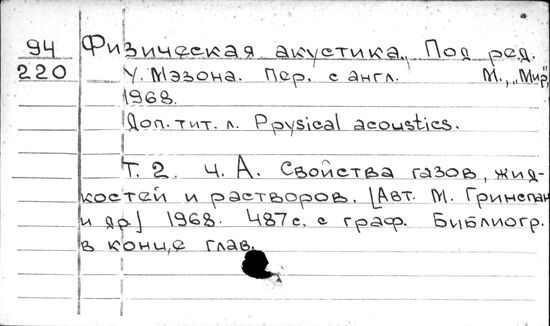 94 Физическая акустика. Под ред.
220 У. Мэзона. Пер. с англ. М., „Мир",
1968.
Доп. тит. л. Ppysical acoustics.
Т. 2. ч. А. Свойства газов, жид-
костей и растворов. [Авт. М. Гринспан
и др.] 1968. 487с. с граф. Библиогр.
в конце глав.